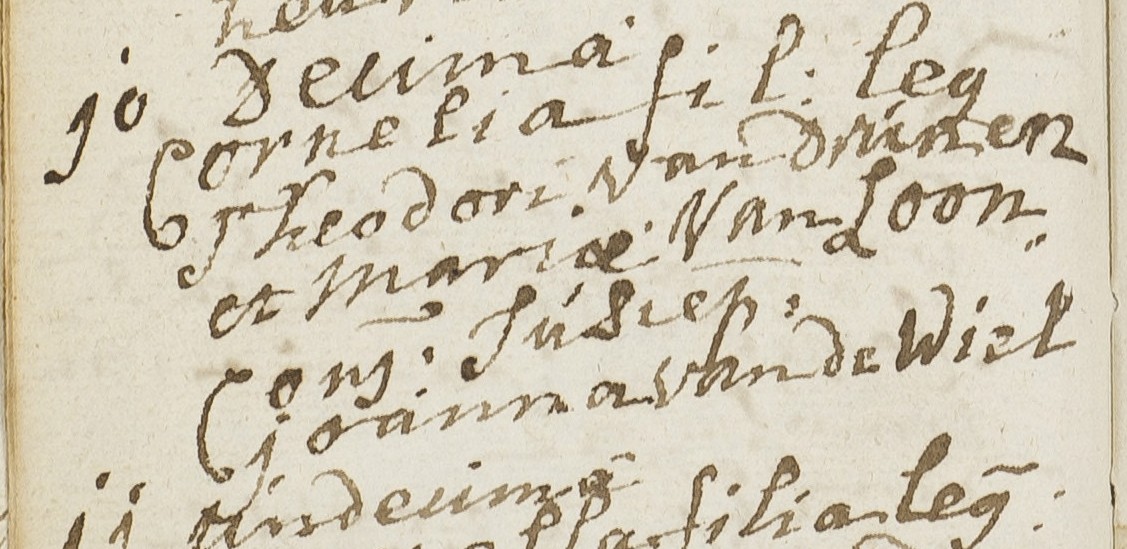 jo Decima
Cornelia fil: leg
Theodori Van Drunen
et Mariæ Van Loon
Conj: Suscep:
joanna van de Wiel
ij undecima
filia leg: